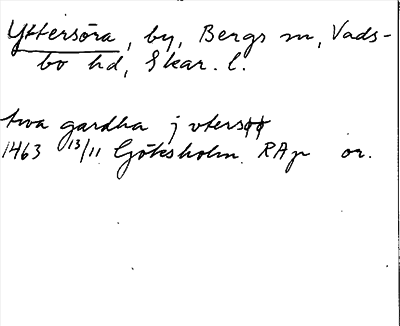 Yttersöra, by, Bergs sn, Vads-
bo hd, Skar. l.
twa gardha j vtersøø
1463 13/11 Göksholm RAp or.